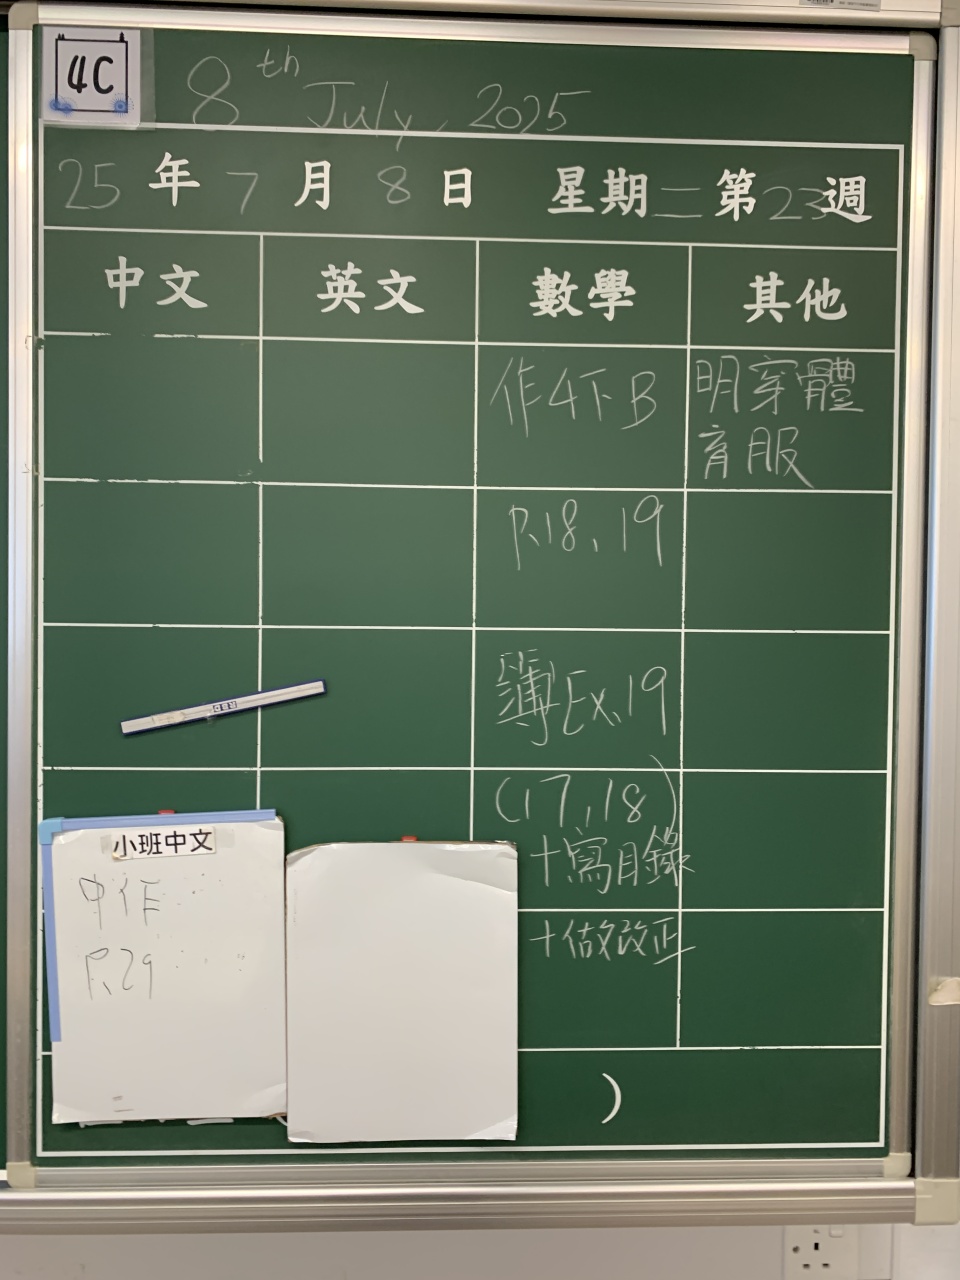 4C
8th July, 2025
25年7月8日 星期二第23週
中文 英文 數學 其他
作4下B
明穿體
育服
P.18、19
簿Ex.19
(17,18)
+寫目錄
+做改正
小班中文
中作
P.29
)